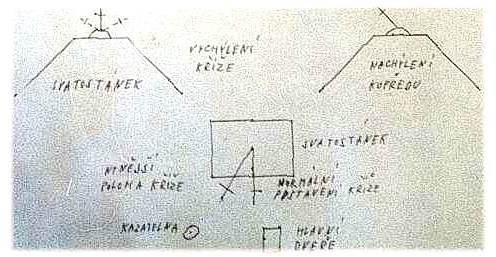 VYCHÝLENÍ
KŘÍŽE
SVATOSTÁNEK
NACHÝLENÍ
KUPŘEDU
SVATOSTÁNEK
NYNĚJŠÍ
POLOHA KŘÍŽE
NORMÁLNÍ
POSTAVENÍ KŘÍŽE
KAZATELNA
HLAVNÍ
DVEŘE